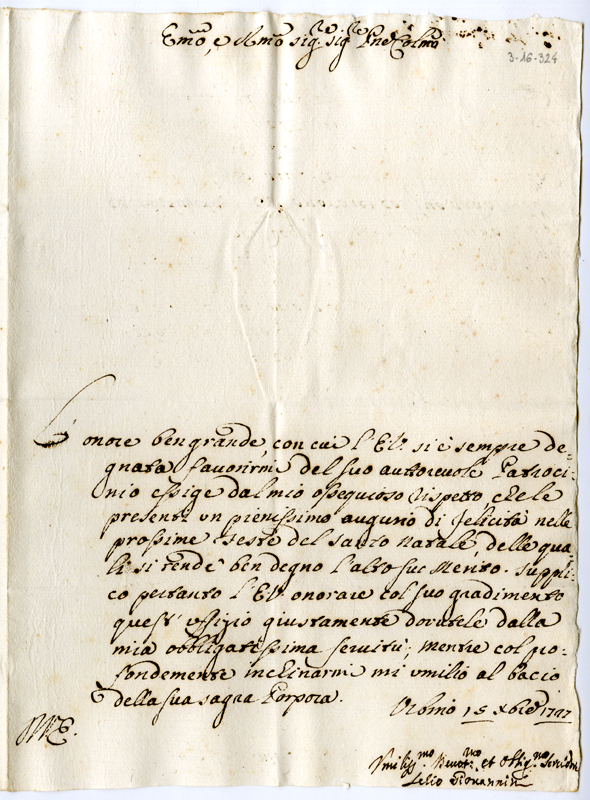 Emo, e Rmo Sig. Sig. Pne Colmo
3-16-324
L'onore ben grande, con cui l'E.V. si è sempre de=
gnata favorirmi del suo autorevole Patroci=
nio essige dal mio ossequioso rispetto che le
presenti un pienissimo augurio di felicità nelle
prossime Feste del santo Natale, delle qua=
li si rende ben degno l'alto suo Merito. Suppli=
co pertanto l'E.V. onorare col suo gradimento
quest'uffizio giustamente dovutele dalla
mia obbligatissima servitù; mentre col pro=
fondemente inclinarmi mi umilio al bacio
della sua sagra Porpora.
Urbino 15 Xbre 1727
Umiliss.mo Devot.mo et Obblig.mo Servidre
Lelio Giovannini